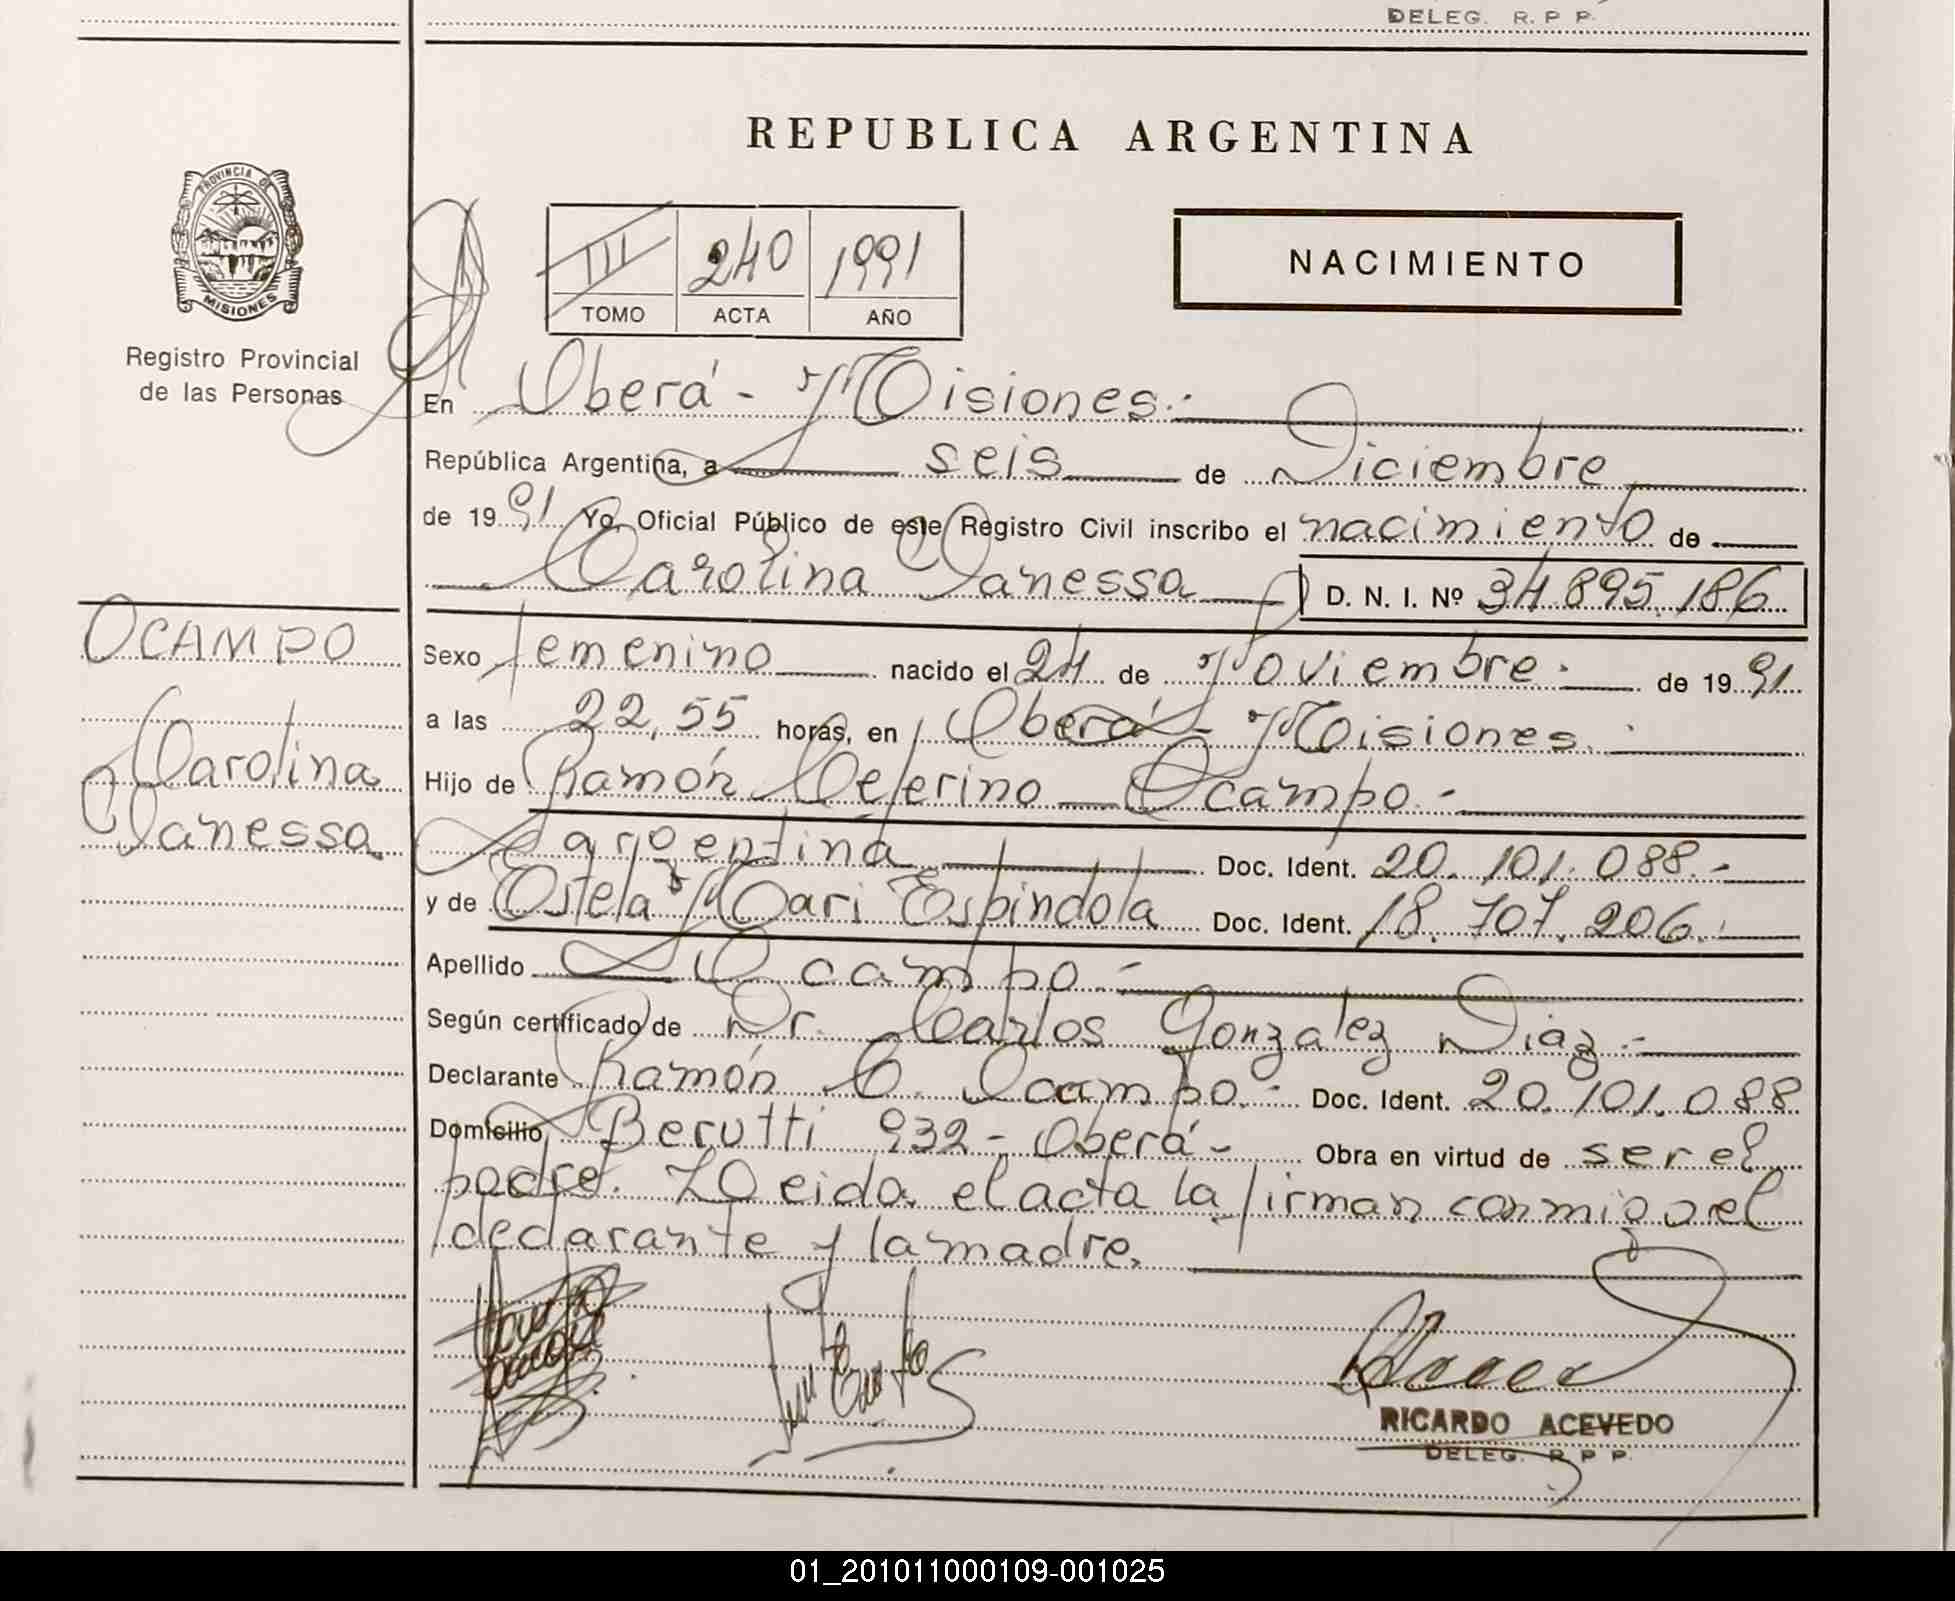 DELEG. R. P P.
REPUBLICA ARGENTINA
PROVINCIA DE
MISIONES
Registro Provincial
de las Personas
III 240 1991
TOMO ACTA AÑO
NACIMIENTO
En Oberá - Misiones.-
República Argentina, a seis de Diciembre
de 1991 Yo, Oficial Público de este Registro Civil inscribo el nacimiento de
Carolina Vanessa D. N. I. Nº 34.895.186
OCAMPO
Carolina
Vanessa
Sexo femenino nacido el 24 de Noviembre. de 1991
a las 22,55 horas, en Oberá - Misiones.
Hijo de Ramón Ceferino Ocampo.-
argentina Doc. Ident. 20.101.088.-
y de Estela Mari Espindola Doc. Ident. 18.707.206.-
Apellido Ocampo.-
Según certificado de Dr. Carlos Gonzalez Diaz.-
Declarante Ramón C. Ocampo.- Doc. Ident. 20.101.088
Domicilio Berutti 932 - Oberá - Obra en virtud de ser el
padre. LOeida el acta la firman conmigo el
declarante y la madre.
RICARDO ACEVEDO
DELEG. R P P.
01_201011000109-001025